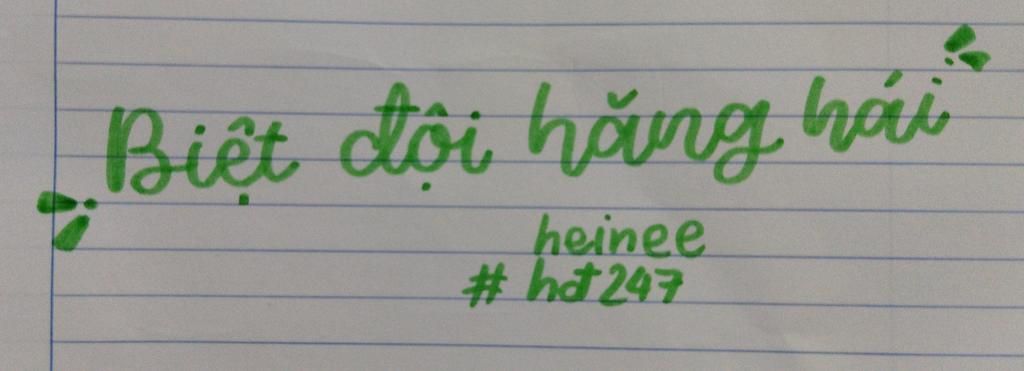 Biệt đội hăng hái
heinee
# hđt247